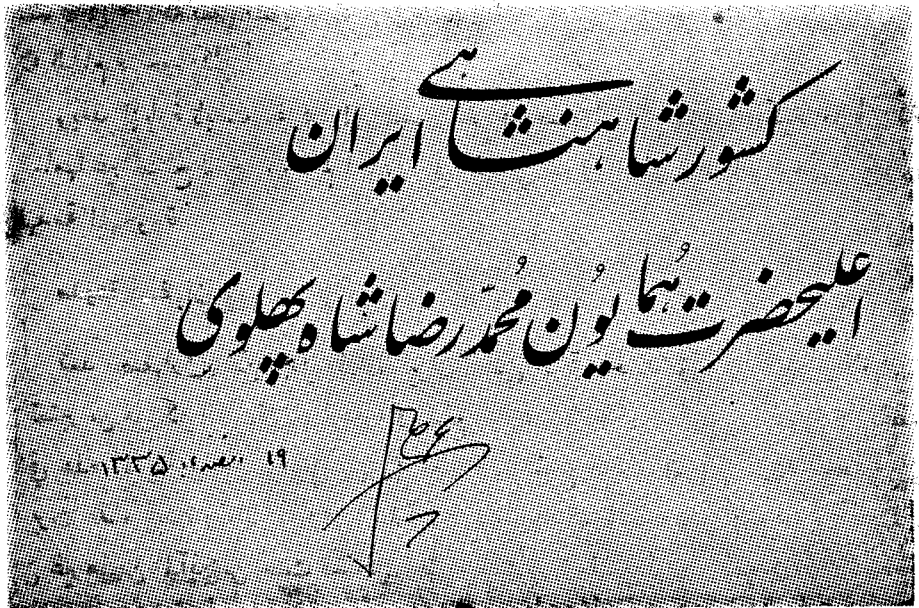 کشور شاهنشاهی ایران
اعلیحضرت همایون مُحمّد رضا شاه پهلوی
۱۹ ۱۳۳۵